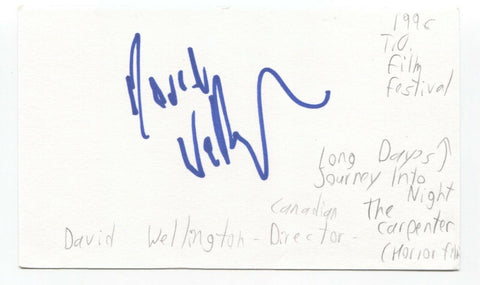 1996
T.O.
Film
Festival
David
Well
Long Days
Journey Into
Night
Canadian The
Carpenter
David Wellington - Director -
(Horror